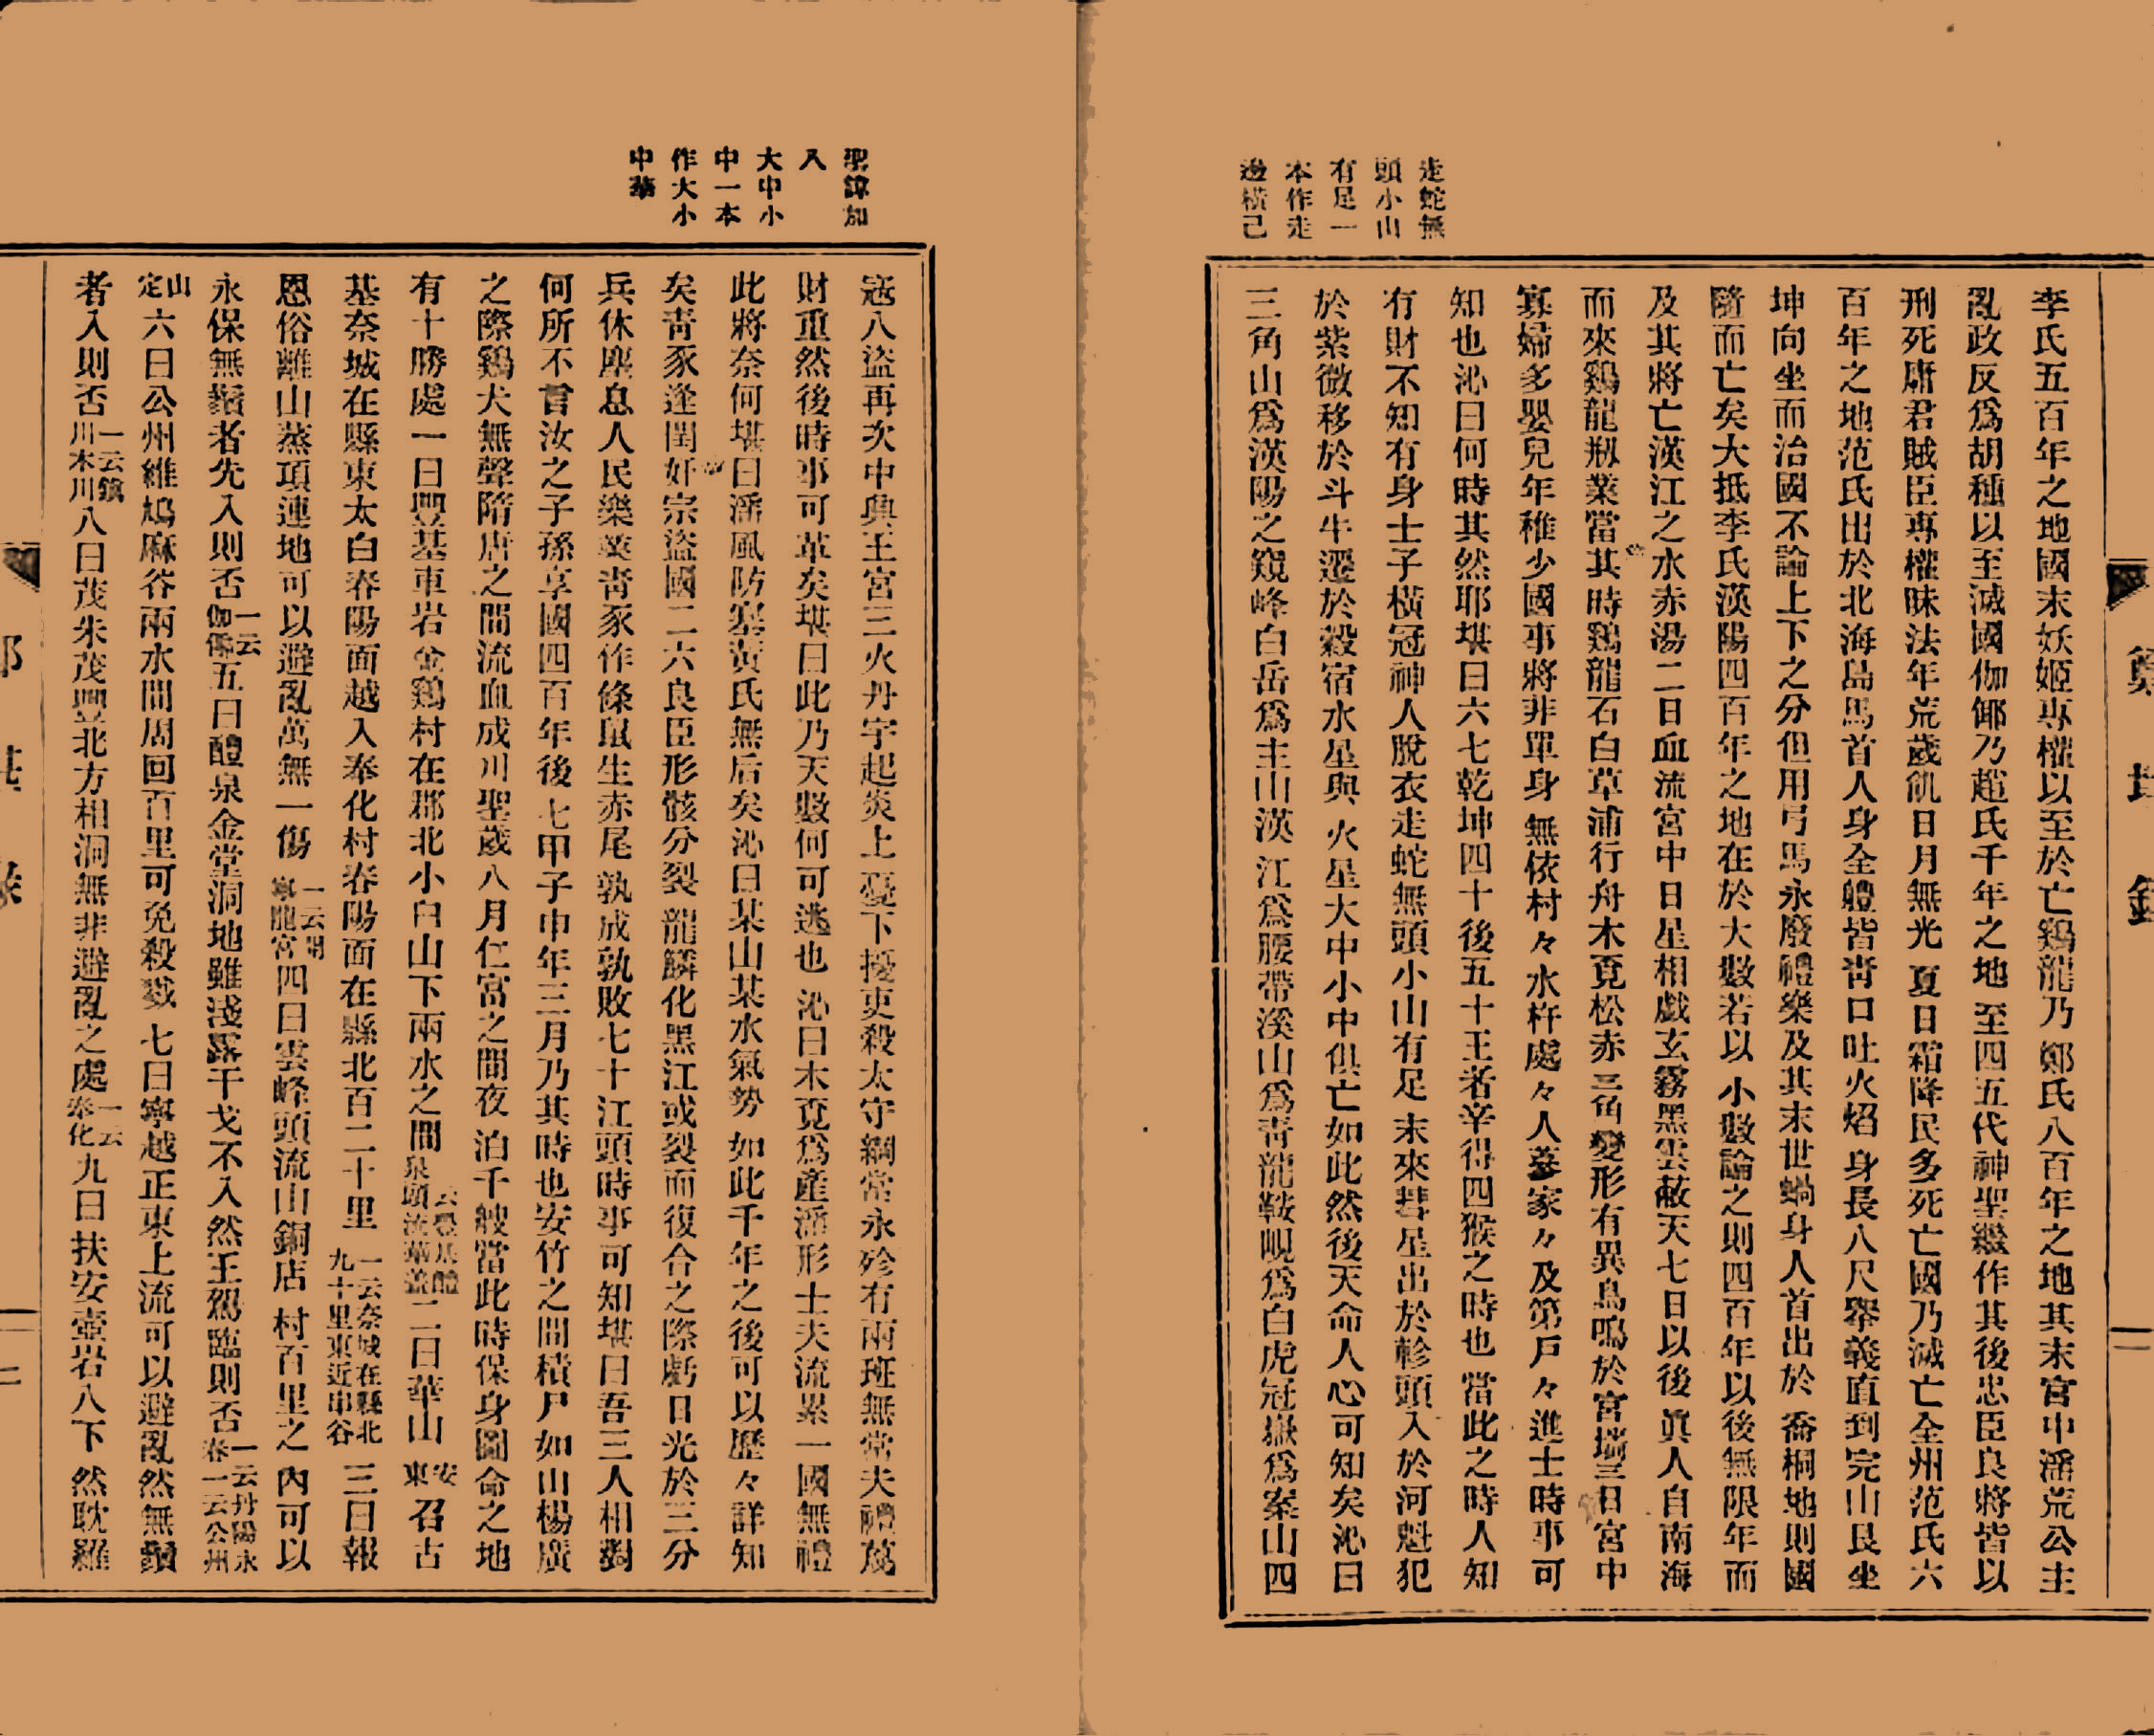 走蛇無
頭小山
有足一
本作走
邊橫己
李氏五百年之地國末妖姬專權以至於亡鷄龍乃鄭氏八百年之地其末宮中淫荒公主
亂政反爲胡種以至滅國伽倻乃趙氏千年之地至四五代神聖繼作其後忠臣良將皆以
刑死庸君賊臣專權昧法年荒歲飢日月無光夏日霜降民多死亡國乃滅亡全州范氏六
百年之地范氏出於北海島馬首人身全軆皆靑口吐火焰身長八尺擧義直到完山艮坐
坤向坐而治國不論上下之分但用弓馬永廢禮樂及其末世蝸身人首出於喬桐地則國
隨而亡矣大抵李氏漢陽四百年之地在於大數若以小數論之則四百年以後無限年而
及其將亡漢江之水赤湯二日血流宮中日星相戲玄霧黑雲蔽天七日以後眞人自南海
而來鷄龍刱業當其時鷄龍石白草浦行舟木覓松赤三角變形有異鳥鳴於宮墻三日宮中
寡婦多嬰兒年稚少國事將非單身無依村々水杵處々人蔘家々及第戶々進士時事可
知也沁曰何時其然耶堪曰六七乾坤四十後五十王者辛得四猴之時也當此之時人知
有財不知有身士子橫冠神人脫衣走蛇無頭小山有足末來彗星出於軫頭入於河魁犯
於紫微移於斗牛遷於穀宿水星與火星大中小中俱亡如此然後天命人心可知矣沁曰
三角山爲漢陽之窺峰白岳爲主山漢江爲腰帶溪山爲靑龍鞍峴爲白虎冠嶽爲案山四
聖諱加
入
大中小
中一本
作大小
中華
寇八盜再次中興王宮三火丹宇起炎上憂下擾吏殺太守綱常永殄有兩班無常夫禮蔑
財重然後時事可革矣堪曰此乃天數何可逃也沁曰木覓爲產淫形士夫流累一國無禮
此將奈何堪曰潘風防塞黃氏無后矣沁曰某山某水氣勢如此千年之後可以歷々詳知
矣靑豕逢閏奸宗盜國二六良臣形骸分裂龍鱗化黑江或裂而復合之際虧日光於三分
兵休塵息人民樂業靑豕作條鼠生赤尾孰成孰敗七十江頭時事可知堪曰吾三人相對
何所不言汝之子孫享國四百年後七甲子申年三月乃其時也安竹之間積尸如山楊廣
之際鷄犬無聲隋唐之間流血成川聖歲八月仁富之間夜泊千艘當此時保身圖命之地
有十勝處一曰豐基車岩金鷄村在郡北小白山下兩水之間二曰華山安東召古
基奈城在縣東太白春陽面越入奉化村春陽面在縣北百二十里一云奈城在縣北九十里東近申谷三曰報
恩俗離山蒸項連地可以避亂萬無一傷四曰雲峰頭流山銅店村百里之內可以
永保無鬚者先入則否一云伽倻五曰醴泉金堂洞地雖淺露干戈不入然王駕臨則否一云丹陽永春一云公州
定山六曰公州維鳩麻谷兩水間周回百里可免殺戮七曰寧越正東上流可以避亂然無鬚
者入則否川木川八曰茂朱茂興並北方相洞無非避亂之處一云奉化九曰扶安壺岩八下然耽羅